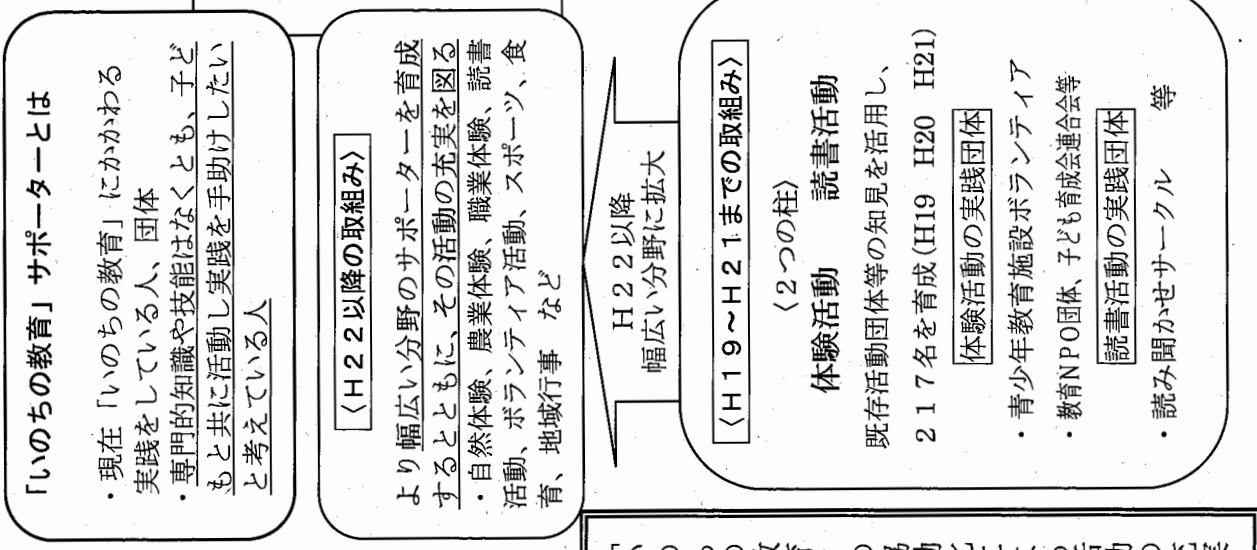 「いのちの教育」サポーターとは
・現在「いのちの教育」にかかわる
実践をしている人、団体
・専門的知識や技能はなくとも、子ど
もと共に活動し実践を手助けしたい
と考えている人
〈H22以降の取組み〉
より幅広い分野のサポーターを育成
するとともに、その活動の充実を図る
・自然体験、農業体験、職業体験、読書
活動、ボランティア活動、スポーツ、食
育、地域行事 など
H22以降
幅広い分野に拡大
〈H19～H21までの取組み〉
〈2つの柱〉
体験活動 読書活動
既存活動団体等の知見を活用し、
217名を育成(H19 H20 H21)
体験活動の実践団体
・青少年教育施設ボランティア
・教育NPO団体、子ども育成会連合会等
読書活動の実践団体
・読み聞かせサークル 等